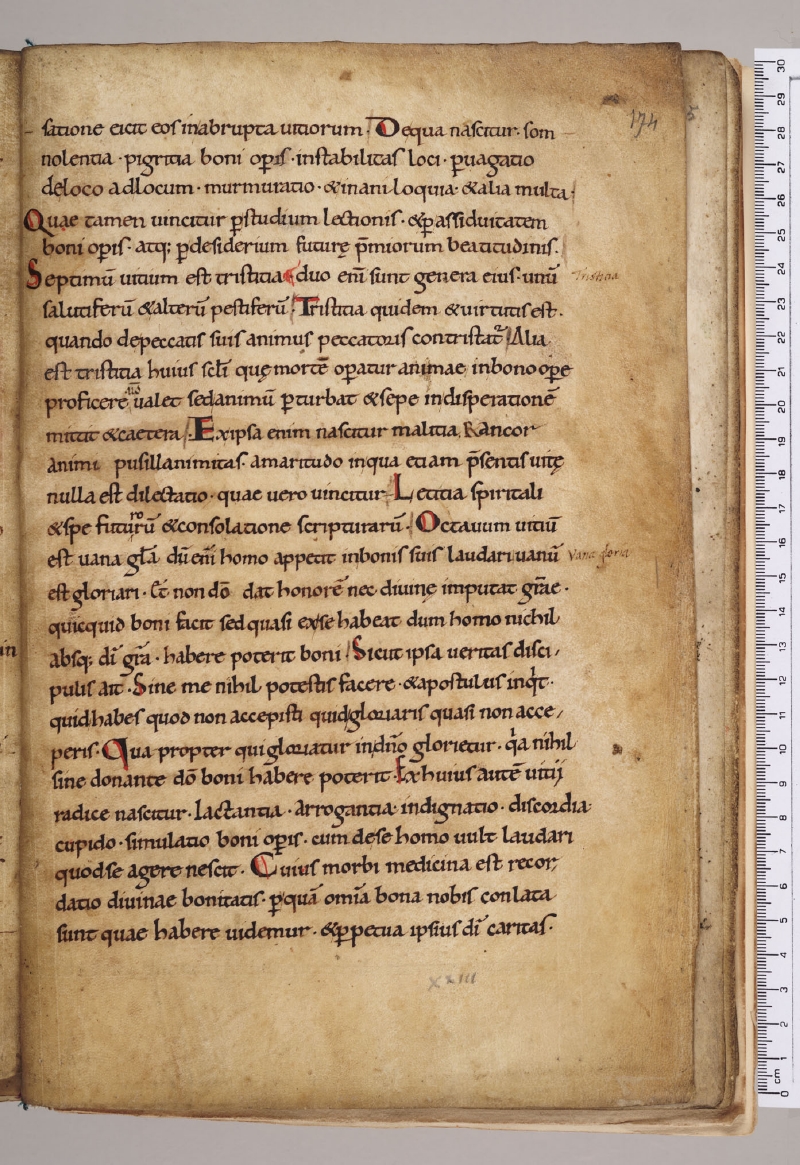 174 5
satione eicit eos inabrupta uitiorum. Dequa nascitur. som
nolentia · pigritia boni opis · instabilitas loci · puagatio
deloco adlocum · murmuratio · &inani loquia · &alia multa.
Quae tamen uincitur pstudium lectionis · &passiduitatem
boni opis · atq; pdesiderium futurę p̄miorum beatitudinis.
Septimū uitium est tristitia duo eni᷉ sunt genera eius · unū Tristitia
salutiferū &alterū pestiferū. Tristitia quidem &uirtutis est.
quando depeccatis suis animus peccatoris contristat᷑. Alia
est tristitia huius scl̄i quę mortē opatur animae inbono ope
proficere ñ ualet sedanimū pturbat &sepe indisperationē
mittit &caetera. Exipsa enim nascitur malitia, Rancor
animi pusillanimitas · amaritudo inqua etiam p̄sentis uitę
nulla est dilectatio · quae uero uincitur Letitia spiritali
&spe futurū &consolatione scripturarū. Octauum uitiū
est uana gl̄a dū eni᷉ homo appetit inbonis suis laudari uanū Vana gloria
est gloriari · Et non dō dat honorē nec diuinę imputat gr̄ae ·
quicquid boni facit sed quasi exse habeat dum homo nichil
absq; di᷉ gr̄a · habere poterit boni. Sicut ipsa ueritas disci,
pulis ait · Sine me nihil potestis facere · &apostulus inqt ·
quidhabes quod non accepisti quidgloriaris quasi non acce,
peris. Qua propter qui gloriatur indn̄o glorietur · qa nihil
sine donante dō boni habere poterit. Exhuius autē uitij
radice nascitur · lactantia · arrogantia · indignatio · discordia
cupido · simulatio boni opis · cum dese homo uult laudari
quodse agere nescit · Cuius morbi medicina est recor,
datio diuinae bonitatis · pquā omi᷉a bona nobis conlata
sunt quae habere uidemur · &ppetua ipsius di᷉ caritas.
xxiii